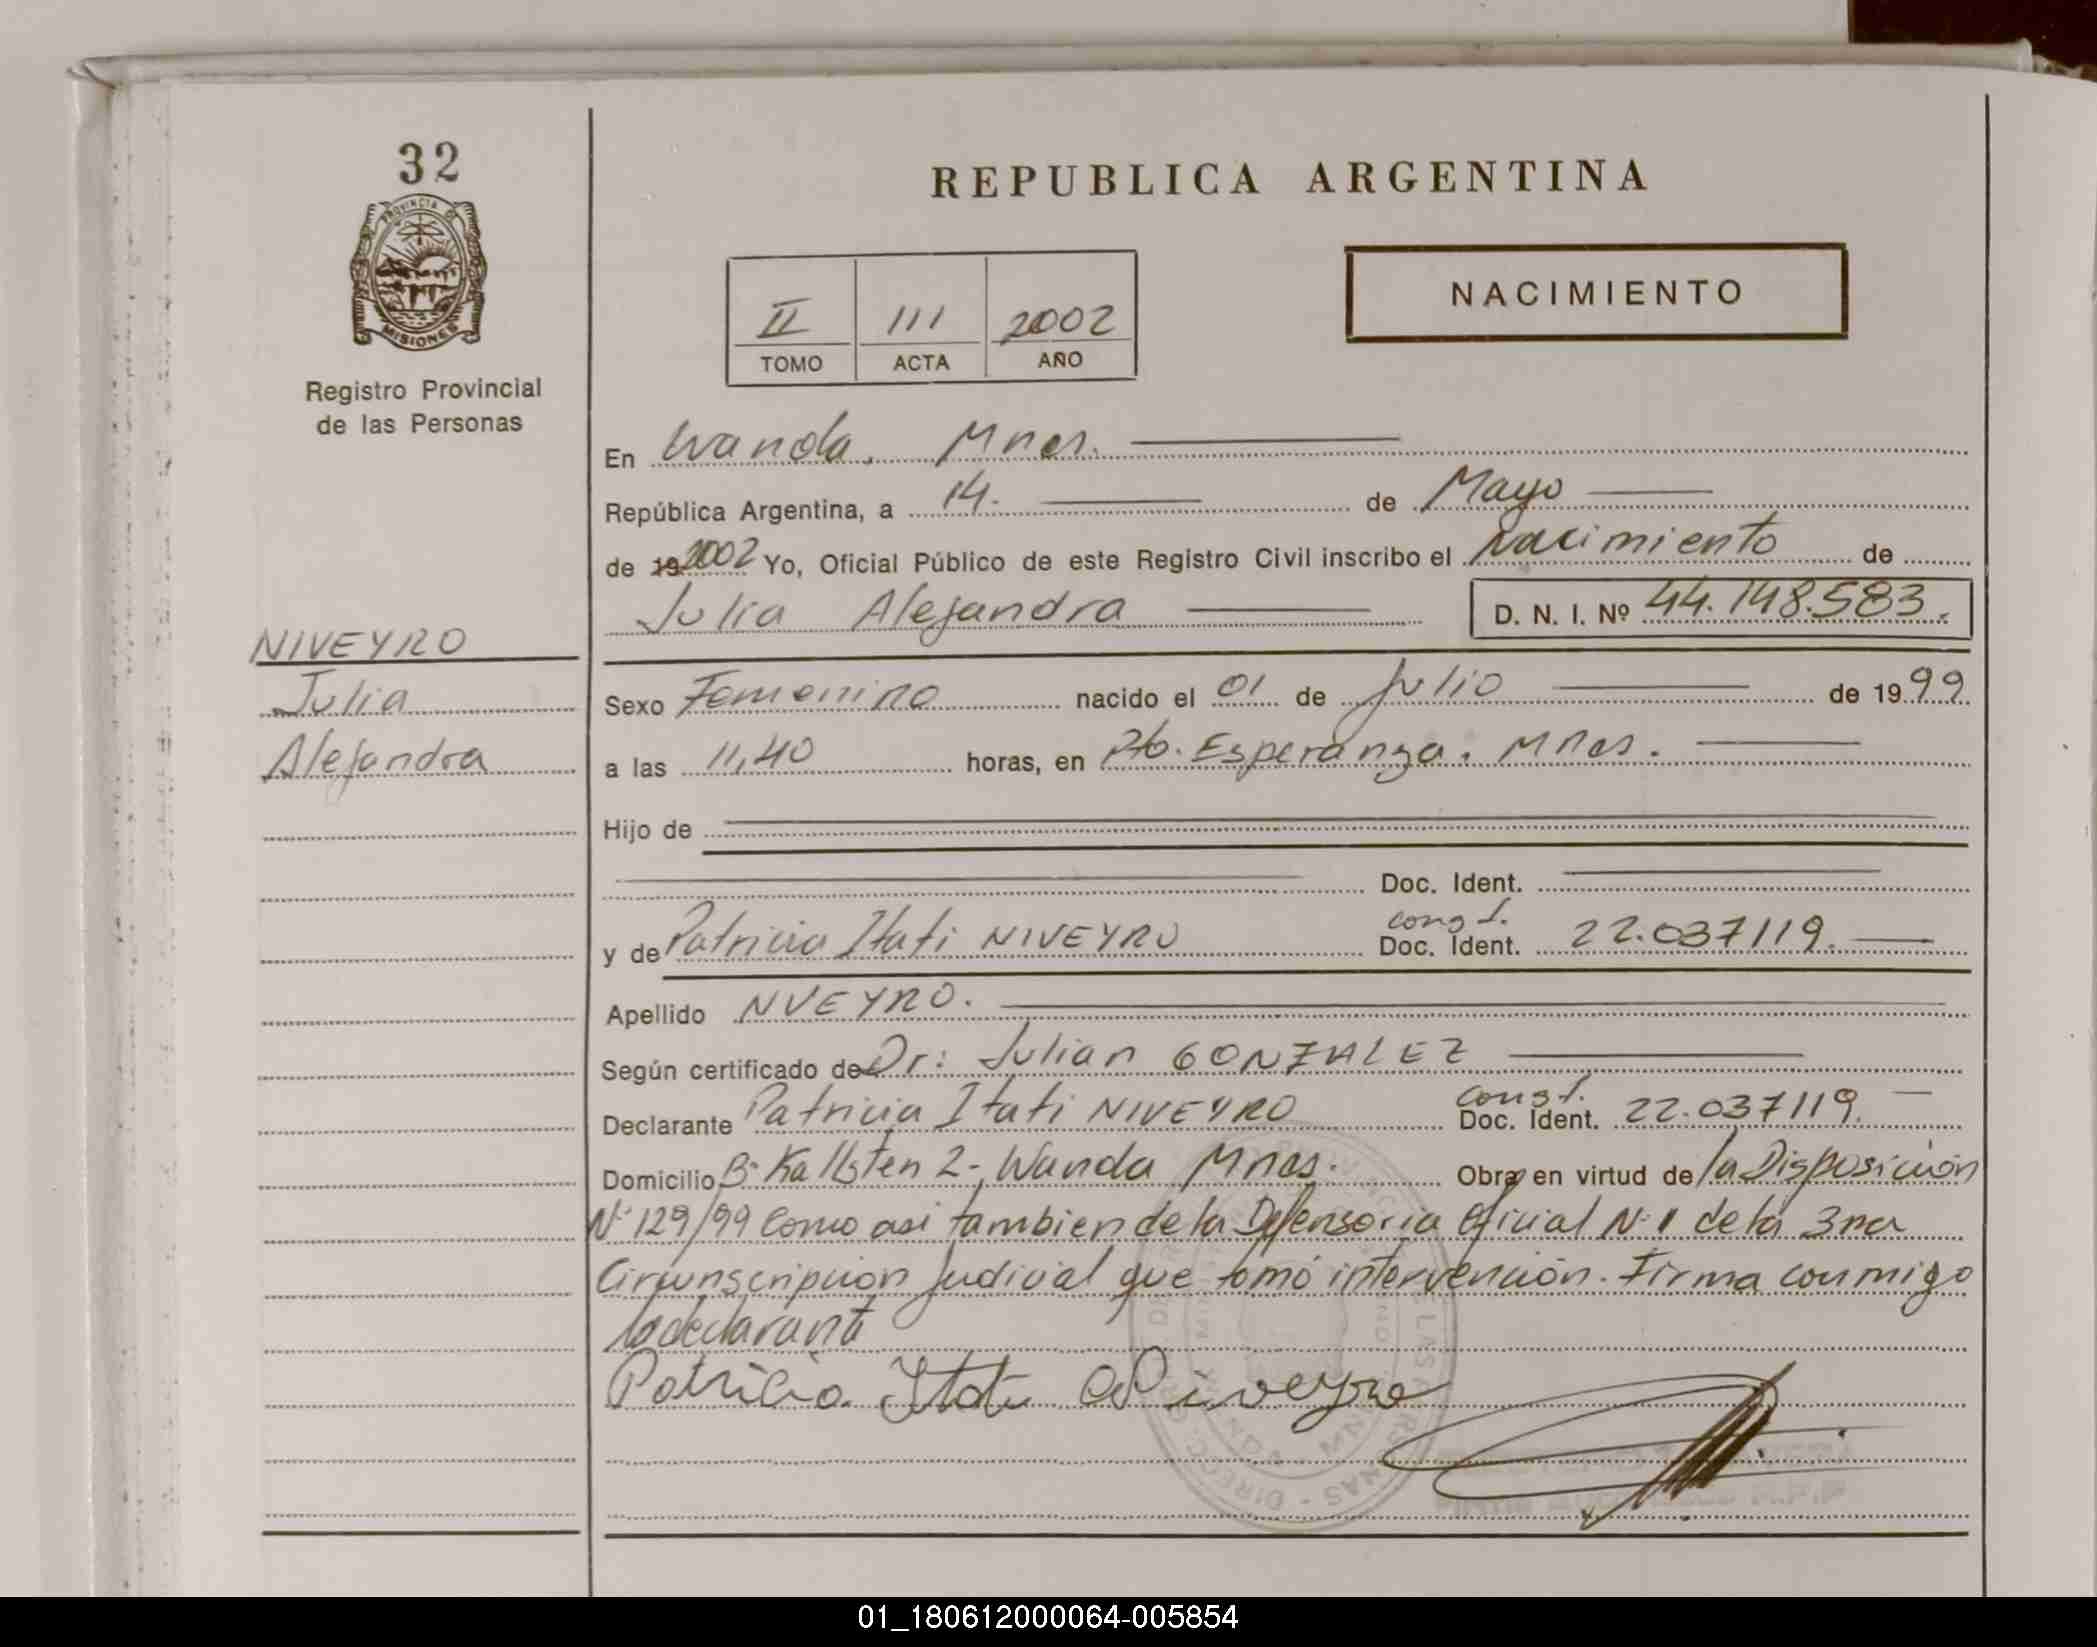 32
PROVINCIA DE
MISIONES
Registro Provincial
de las Personas
REPUBLICA ARGENTINA
NACIMIENTO
II 111 2002
TOMO ACTA AÑO
En Wanda. Mnes.
República Argentina, a 14. de Mayo
de 19 2002 Yo, Oficial Público de este Registro Civil inscribo el Nacimiento de
Julia Alejandra D. N. I. Nº 44.148.583.
NIVEYRO
Julia
Alejandra
Sexo Femenino nacido el 01 de Julio de 1999
a las 11,40 horas, en Pto. Esperanza. Mnes.
Hijo de
Doc. Ident.
const.
y de Patricia Itati NIVEYRO Doc. Ident. 22.037119.
Apellido NVEYRO.
Según certificado de Dr: Julian GONZALEZ
const.
Declarante Patricia Itati NIVEYRO Doc. Ident. 22.037119.
Domicilio Bº Kallsten 2-, Wanda Mnes. Obra en virtud de la Disposición
Nº 129/99 Como asi tambien de la Defensoria Oficial Nº 1 de la 3ra
Circunscripcion Judicial que tomó intervención. Firma conmigo
la declarante
Patricia Itati Niveyro
01_180612000064-005854